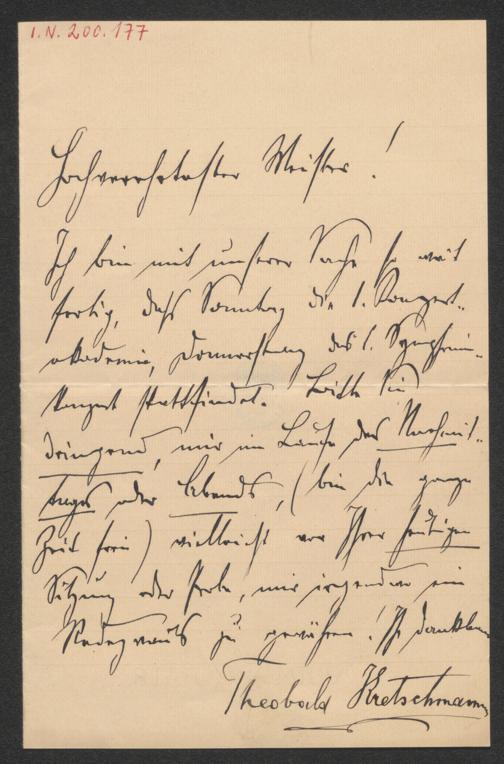 I.N. 200.177
Hochverehrtester Meister!
Ich bin mit unserer Sache so weit
fertig, daß Sonntag die 1. Konzert-
akademie, Donnerstag das 1. Symphonie-
konzert stattfindet. Bitte Sie
dringend, mir im Laufe des Nachmit-
tages oder Abends, (bin die ganze
Zeit frei) vielleicht vor Ihrer heutigen
Sitzung oder Probe, mir irgendwo ein
Rendezvous zu gewähren! Ihr dankbarer
Theobald Kretschmann